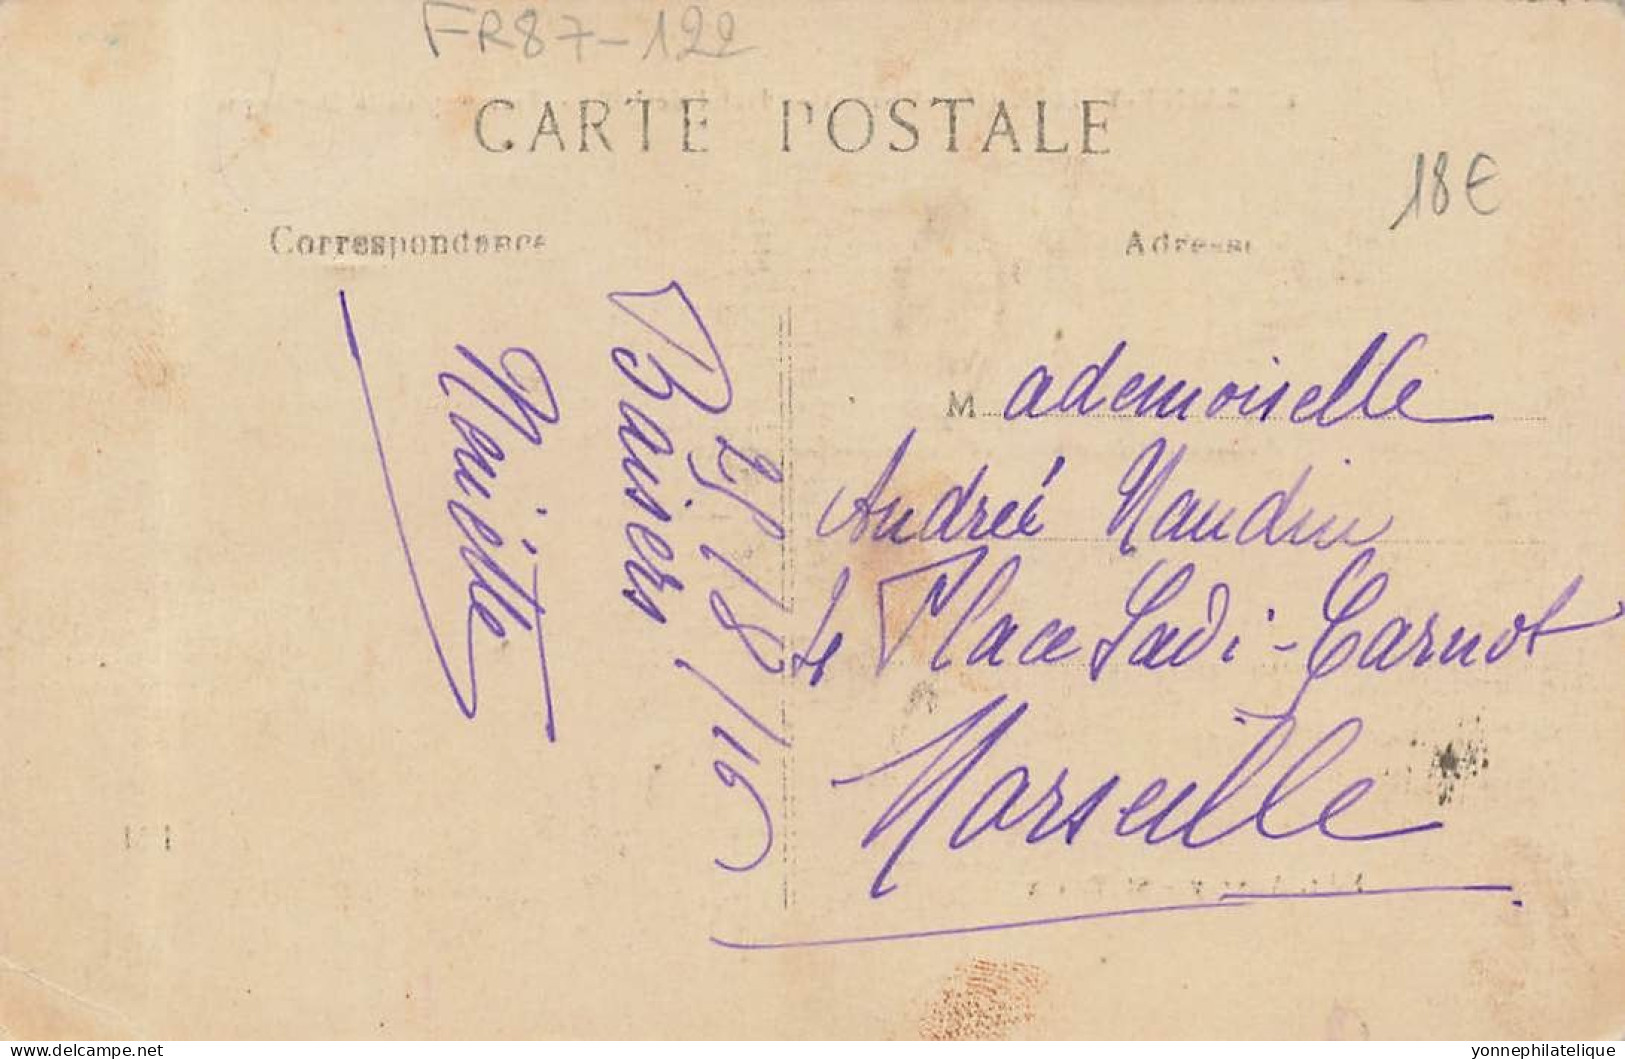 FR87-122
CARTE POSTALE
18€
Correspondance
Adresse
25/8/16
Baisers
Mademoiselle
Andrée Naudin
4 Place Sadi-Carnot
Marseille
www.delcampe.net
yonnephilatelique